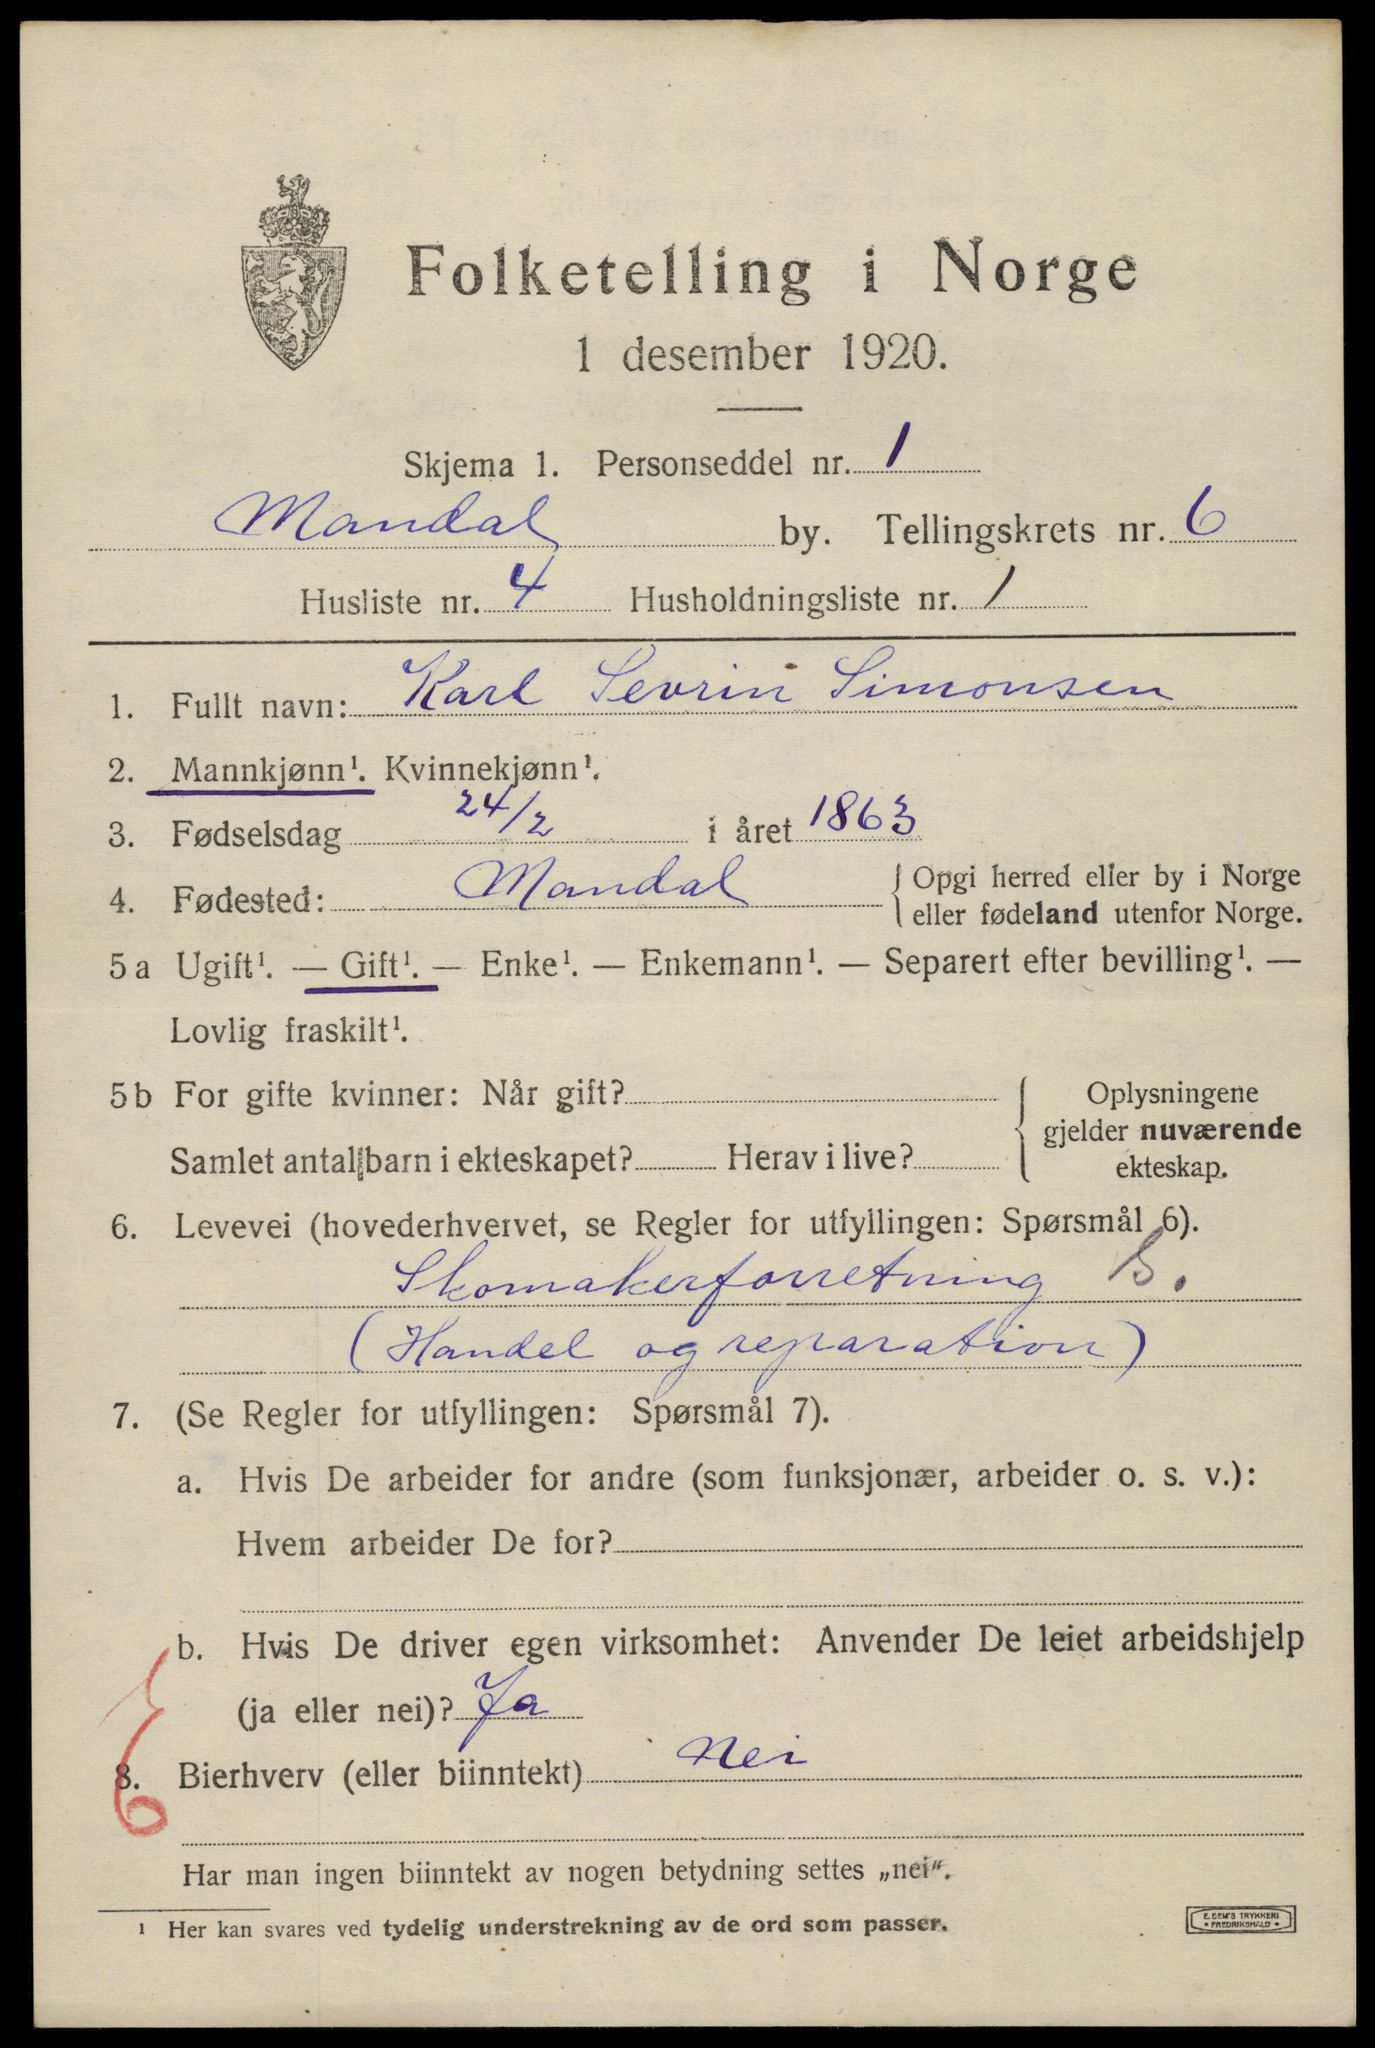 Folketelling i Norge
1 desember 1920.
Skjema 1. Personseddel nr. 1
Mandal by. Tellingskrets nr. 6
Husliste nr. 4 Husholdningsliste nr. 1
1. Fullt navn: Karl Sevrin Simonsen
2. Mannkjønn¹. Kvinnekjønn¹.
3. Fødselsdag 24/2 i året 1863
4. Fødested: Mandal { Opgi herred eller by i Norge
eller fødeland utenfor Norge.
5a Ugift¹. — Gift¹. — Enke¹. — Enkemann¹. — Separert efter bevilling¹. —
Lovlig fraskilt¹.
5b For gifte kvinner: Når gift? { Oplysningene
gjelder nuværende
Samlet antal barn i ekteskapet? Herav i live?
ekteskap.
6. Levevei (hovederhvervet, se Regler for utfyllingen: Spørsmål 6).
Skomakerforretning
(Handel og reparation)
7. (Se Regler for utfyllingen: Spørsmål 7).
a. Hvis De arbeider for andre (som funksjonær, arbeider o. s. v.):
Hvem arbeider De for?
b. Hvis De driver egen virksomhet: Anvender De leiet arbeidshjelp
(ja eller nei)? Ja
8. Bierhverv (eller biinntekt) Nei
Har man ingen biinntekt av nogen betydning settes „nei“.
¹ Her kan svares ved tydelig understrekning av de ord som passer.
E. SEM'S TRYKKERI
• FREDRIKSHALD •